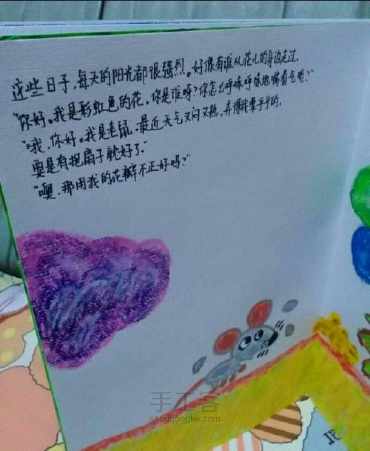 这些日子，每天的阳光都很强烈。好像有谁从花儿的身边走过。
"你好。我是彩虹色的花，你是谁呀？你怎么呼哧呼哧地喘着气呢？"
"哦，你好。我是老鼠。最近天气又闷又热，
要是有把扇子就好了。"
"噢，那用我的花瓣不正好吗？"
手工客